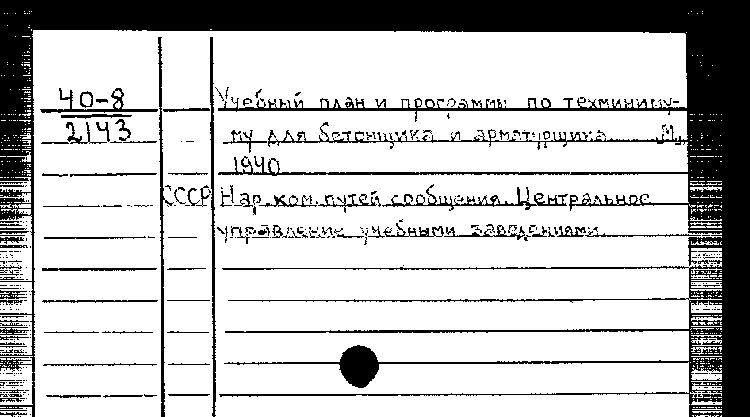 40-8
Учебный план и программы по техминиму-
2143
му для бетонщика и арматурщика. М.,
1940
СССР Нар. ком. путей сообщения. Центральное
управление учебными заведениями.